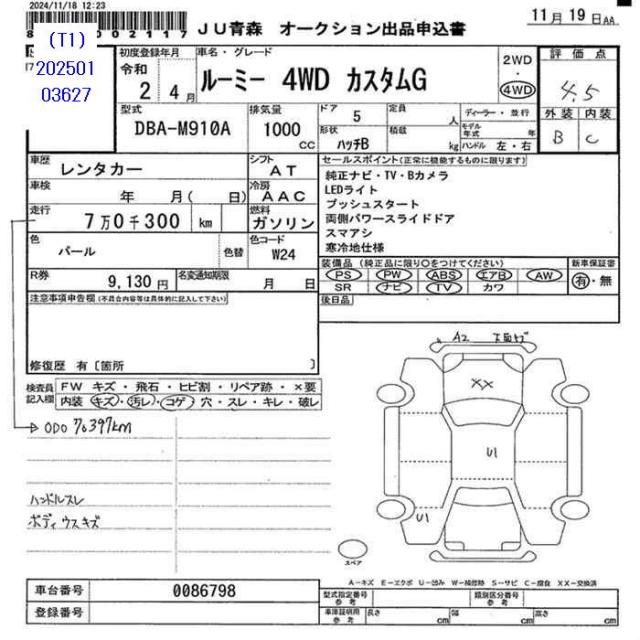 2024/11/18 12:23
8 0 0 0 0 0 0 2 1 1 7
JU青森 オークション出品申込書
11月19日AA
(T1)
202501
03627
初度登録年月
令和
2 4月
車名・グレード
ルーミー 4WD カスタムG
2WD
・
4WD
評価点
4.5
外装 内装
B C
型式
DBA-M910A
排気量
1000
CC
ドア
5
定員
人
形状
ハッチB
積載
kg
ディーラー・並行
モデル年式 年
ハンドル 左・右
車歴
レンタカー
シフト
AT
車検
年 月( 日)
冷房
AAC
走行
7万0千300 km
燃料
ガソリン
色
パール
色替
色コード
W24
R券
9,130円
名変通知期限
月 日
セールスポイント(正常に機能するものに限ります)
純正ナビ・TV・Bカメラ
LEDライト
プッシュスタート
両側パワースライドドア
スマアシ
寒冷地仕様
装備品(純正品に限り○をつけてください)
PS PW ABS エアB AW
SR ナビ TV カワ
新車保証書
有・無
後日品
注意事項申告欄(不具合内容等は具体的に記入して下さい)
修復歴 有〔箇所 〕
検査員記入欄
FW キズ・飛石・ヒビ割・リペア跡・×要
内装 キズ・汚レ・コゲ・穴・スレ・キレ・破レ
ODO 70397km
ハンドルスレ
ボディウスキズ
A2
XX
U1
U1
スペア
A-キズ E-エクボ U-凹み W-補修跡 S-サビ C-腐食 XX-交換済
車台番号
0086798
登録番号
型式指定番号
参考
類別区分番号
参考
車車証明用
参考
長さ cm
幅 cm
高さ cm